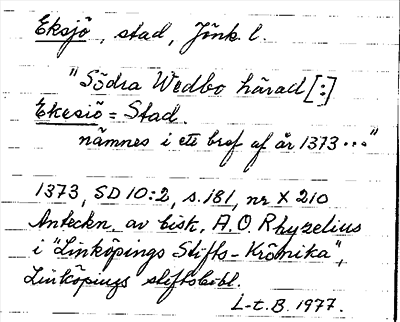 Eksjö, stad, Jönk. l.
"Södra Wedbo härad [:]
Ekesiö = Stad.
nämnes i ett bref af år 1373..."
1373, SD 10:2, s. 181, nr X 210
Anteckn. av bisk. A.O. Rhyzelius
i "Linköpings Stifts-Krönika",
Linköpings stiftsbibl.
L-t. B. 1977.